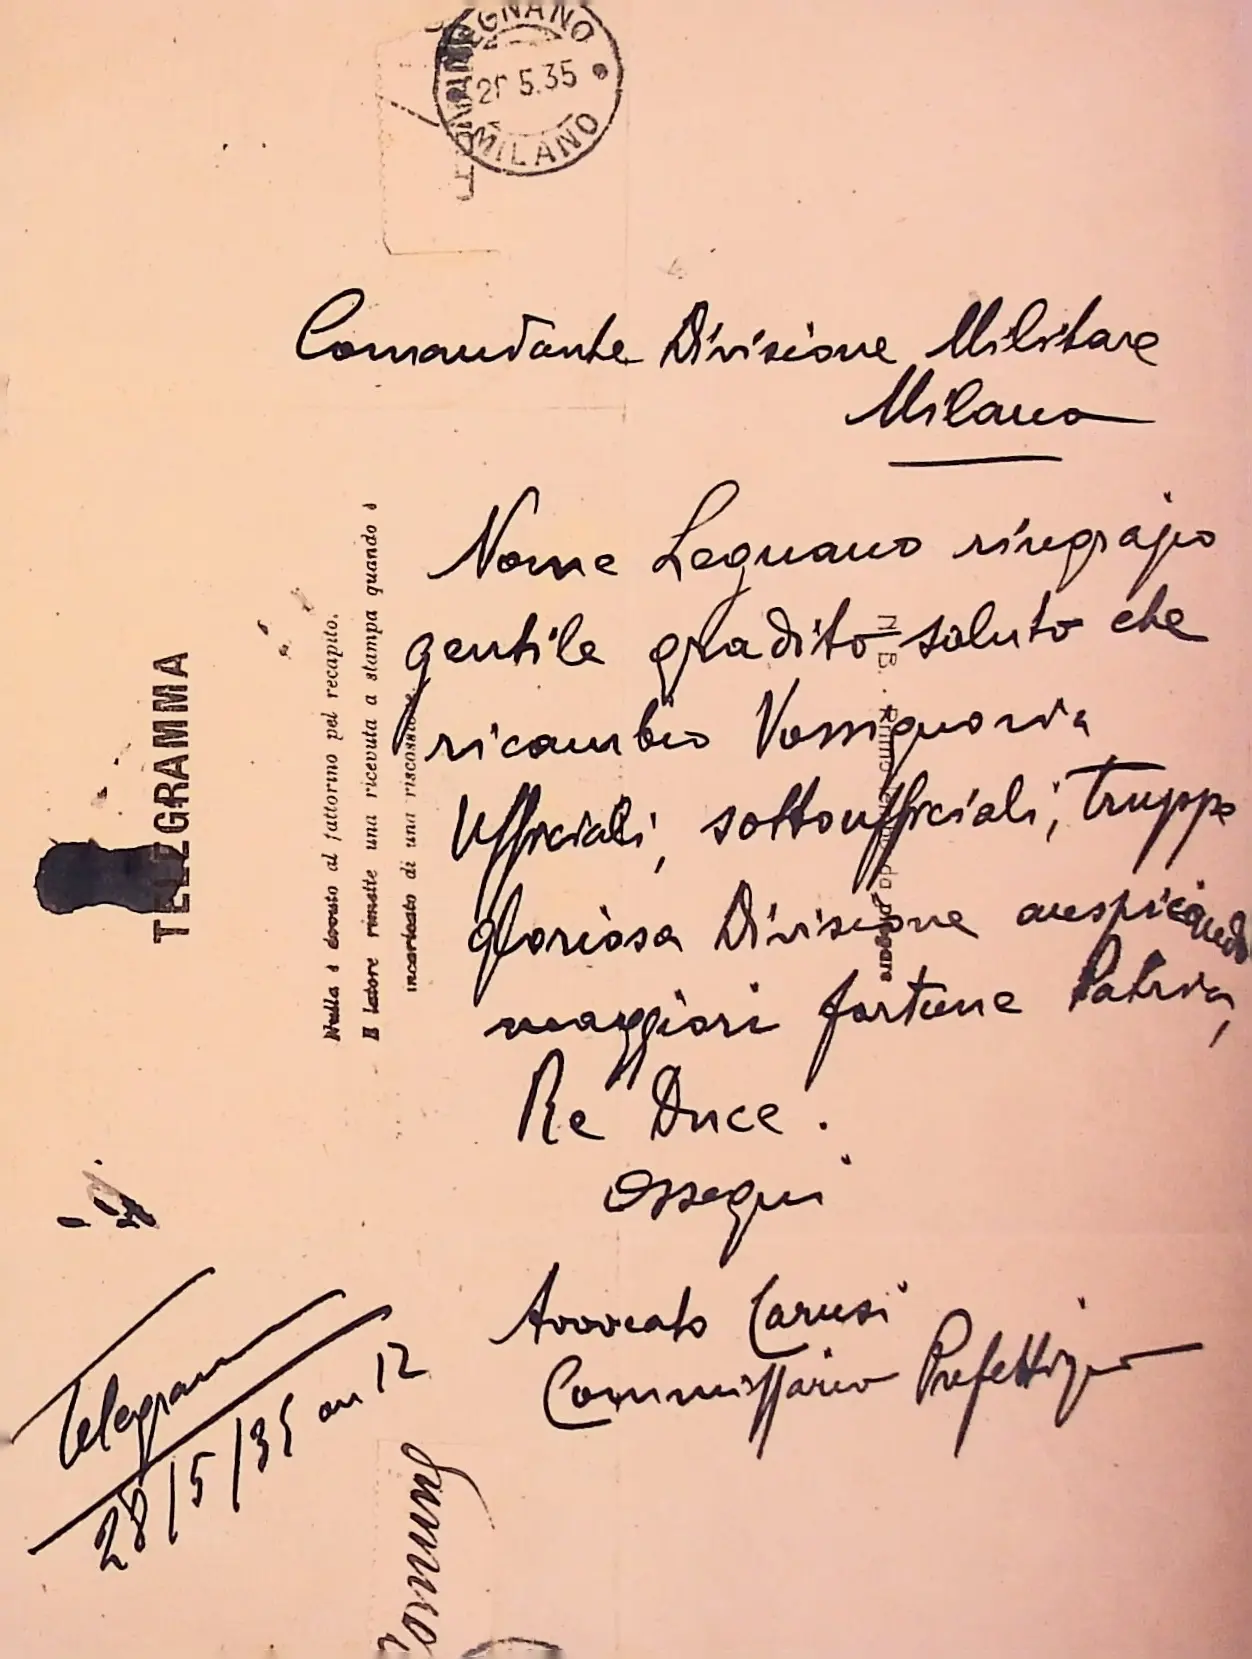 LEGNANO
5.35
MILANO
Comandante Divisione Militare
Milano
Nome Legnano ringrazio
gentile gradito saluto che
ricambio Vossignoria
Ufficiali, sottoufficiali, truppa
gloriosa Divisione auspicando
maggiori fortune Patria,
Re Duce.
Ossequi
Avvocato Carusi
Commissario Prefettizio
TELEGRAMMA
Nulla è dovuto al fattorino pel recapito.
Il latore rimette una ricevuta a stampa quando è
incaricato di una riscossione.
N. B. - da pagare
Telegramma
28/5/35 ore 12